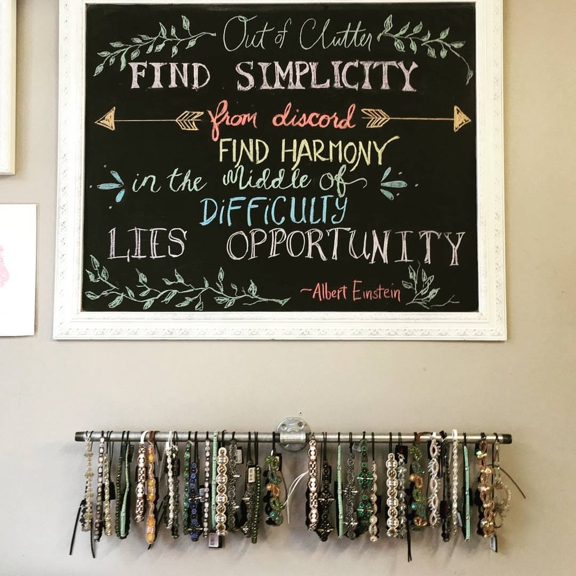 Out of Clutter
FIND SIMPLICITY
from discord
FIND HARMONY
in the Middle of
DiFFiCULTY
LIES OPPORTUNITY
~Albert Einstein